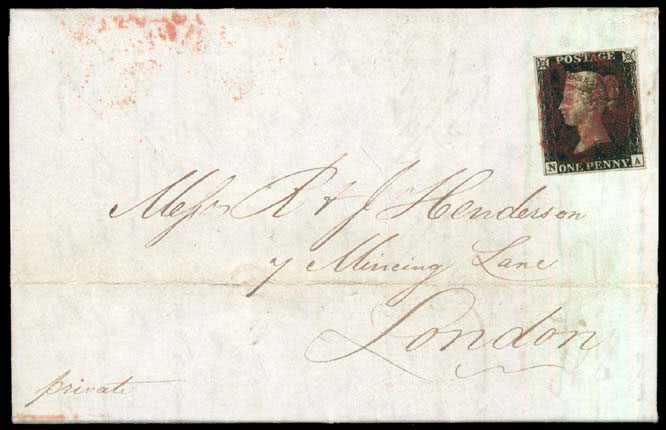 POSTAGE
N ONE PENNY A
Messrs R & J Henderson
7 Mincing Lane
London
private